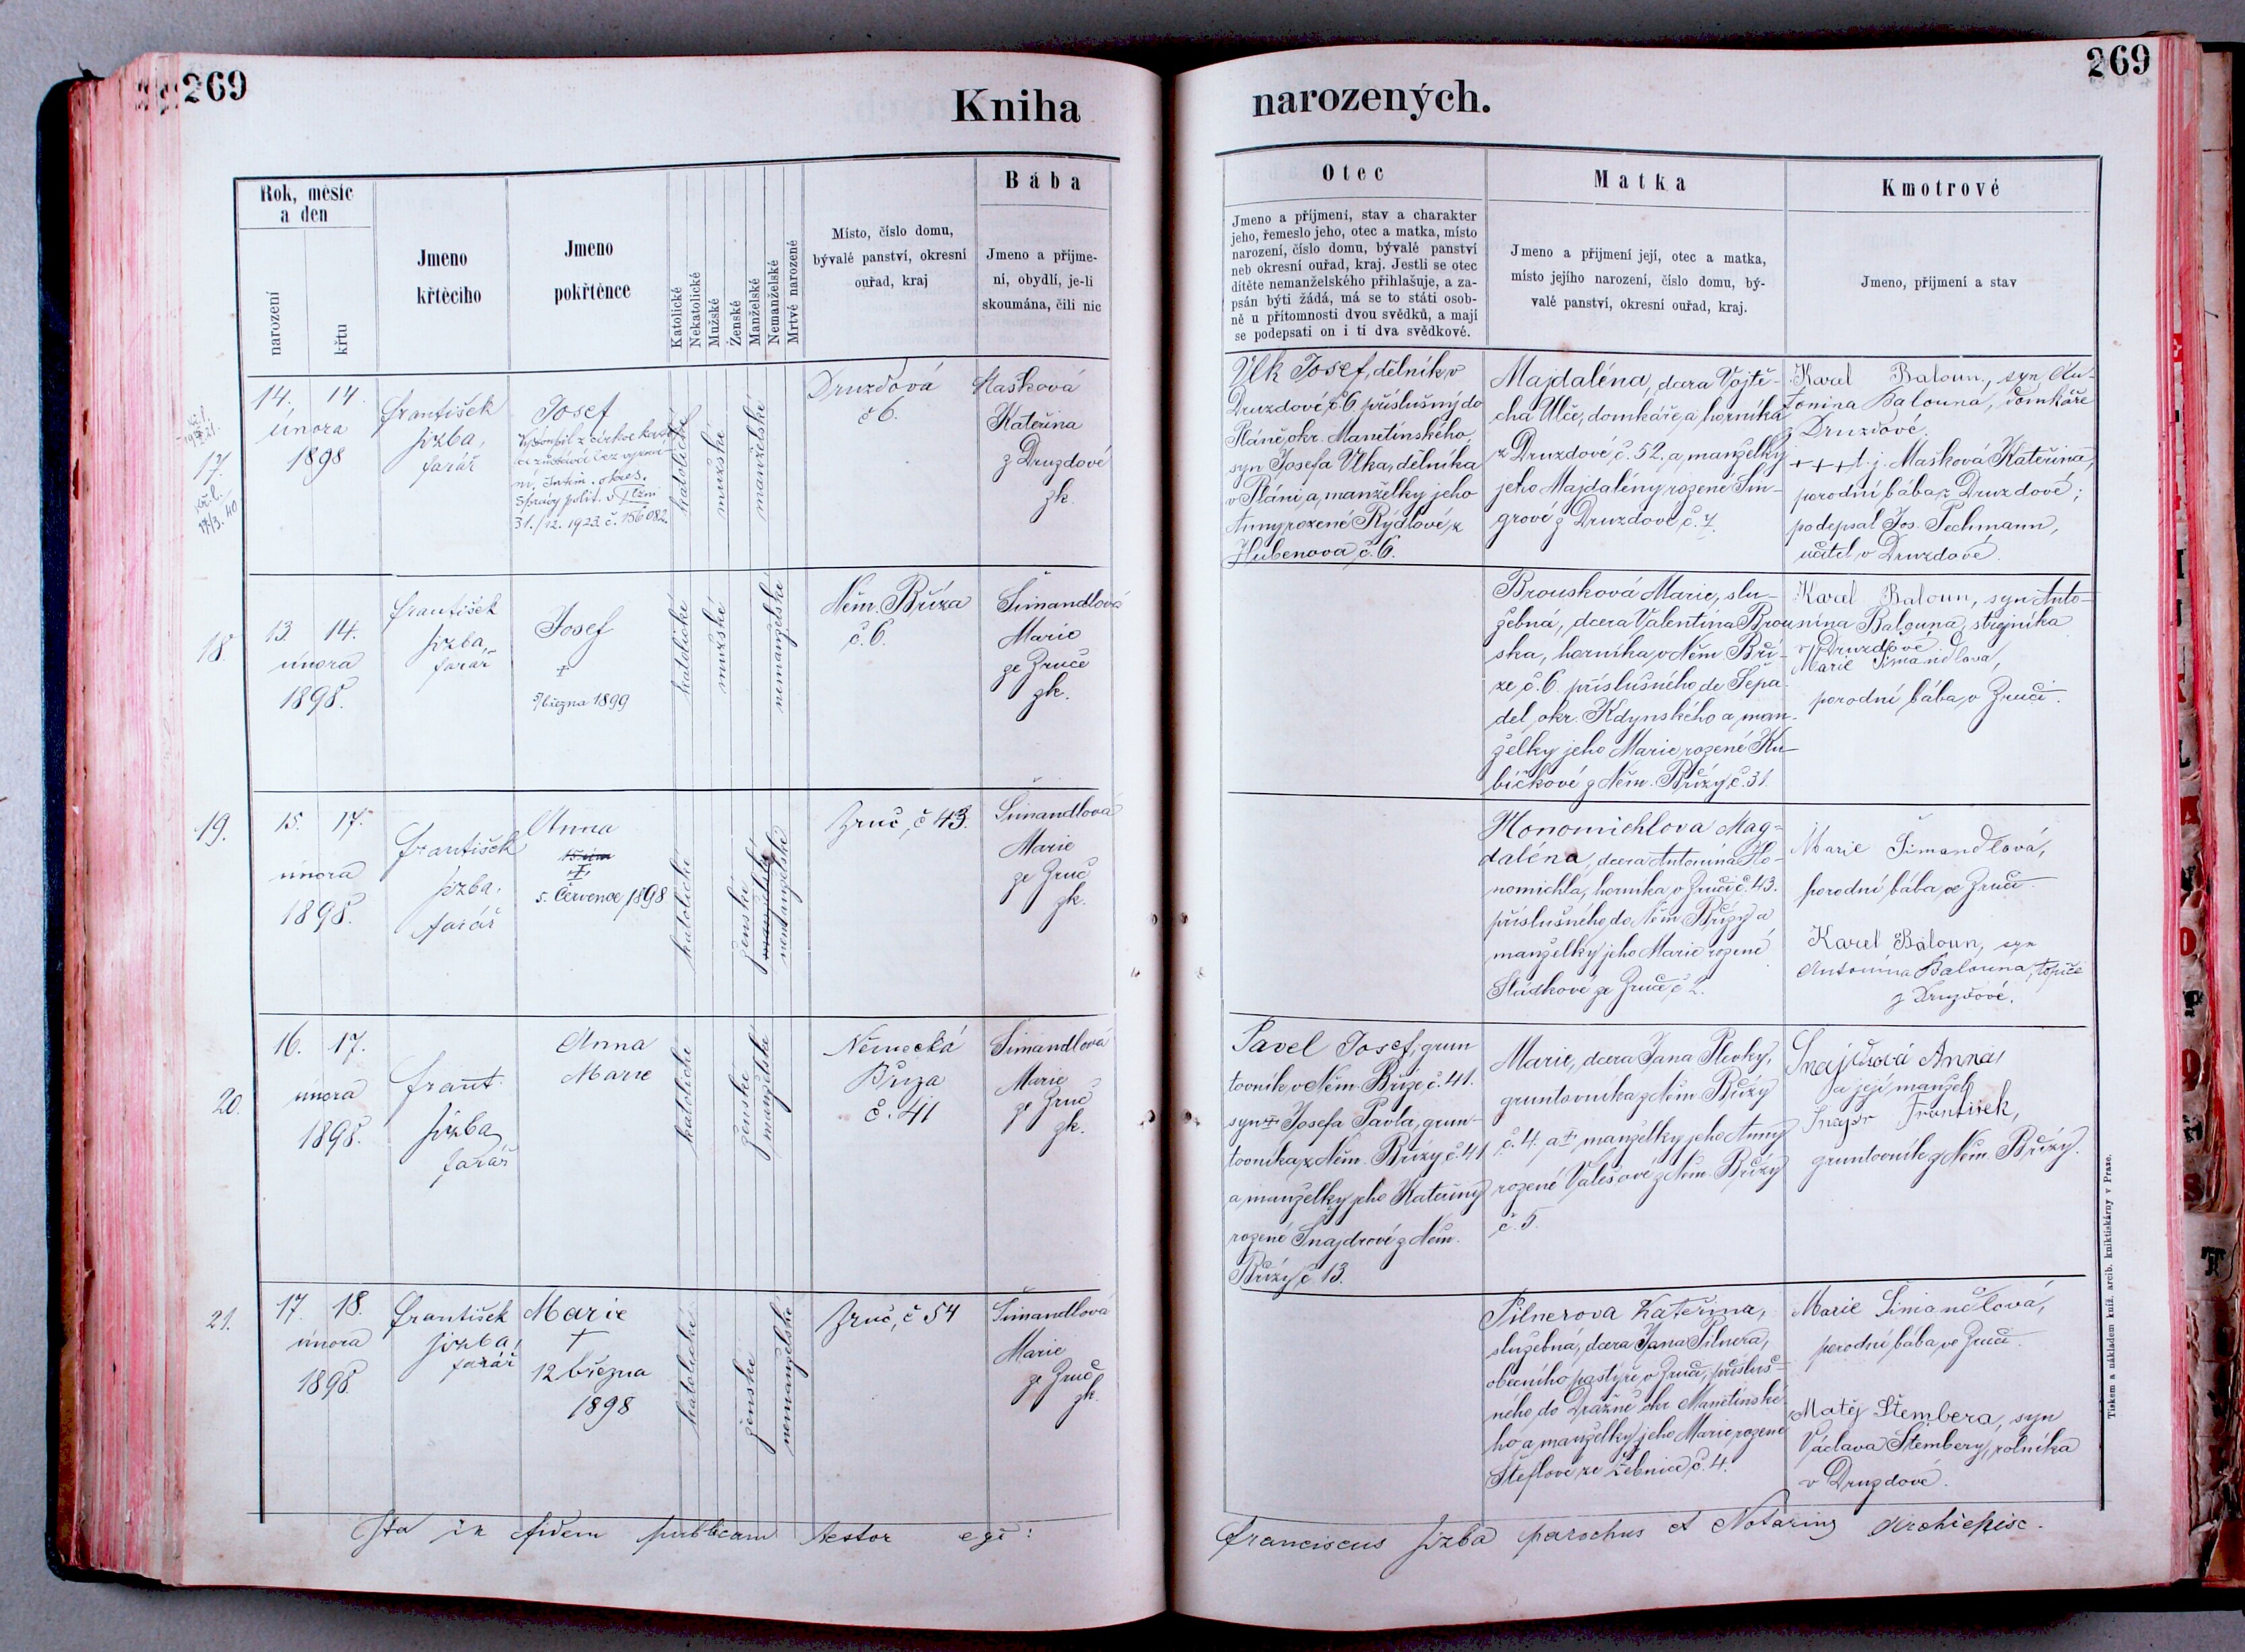 269
Kniha
narozených.
269
Rok, měsíc
a den
narození
křtu
Jmeno
křtěcího
Jmeno
pokřtěnce
Katolické
Nekatolické
Mužské
Ženské
Manželské
Nemanželské
Mrtvě narozené
Místo, číslo domu,
bývalé panství, okresní
ouřad, kraj
Bába
Jmeno a příjme-
ní, obydlí, je-li
skoumána, čili nic
Otec
Jmeno a příjmení, stav a charakter
jeho, řemeslo jeho, otec a matka, místo
narození, číslo domu, bývalé panství
neb okresní ouřad, kraj. Jestli se otec
dítěte nemanželského přihlašuje, a za-
psán býti žádá, má se to státi osob-
ně u přítomnosti dvou svědků, a mají
se podepsati on i ti dva svědkové.
Matka
Jmeno a příjmení její, otec a matka,
místo jejího narození, číslo domu, bý-
valé panství, okresní ouřad, kraj.
Kmotrové
Jmeno, příjmení a stav
17.
17/3. 40
14. 14.
února
1898
František
Jizba,
farář
Josef
Vystoupil z církve kato-
bez vyzná-
ní. Intim. okres.
správy polit. v Plzni
31./12. 1923 č. 156082.
katolické
mužské
manželské
Druzdová
č 6.
Mašková
Kateřina
z Druzdové
zk.
Vlk Josef, dělník v
Druzdové č. 6. příslušný do
Pláně, okr. Manetínského,
syn Josefa Vlka, dělníka
v Pláni, a manželky jeho
Anny rozené Rýdlové, z
Hubenova č. 6.
Majdaléna, dcera Vojtě-
cha Ulče, domkáře a horníka
z Druzdové, č. 52. a manželky
jeho Majdalény rozené Sin-
grové z Druzdové č. 7.
Karel Baloun, syn An-
tonína Balouna, domkáře
z Druzdové.
+++ t. j. Mašková Kateřina,
porodní bába z Druzdové;
podepsal Jos. Pechmann,
učitel v Druzdové.
18.
13. 14.
února
1898.
František
Jizba,
farář
Josef
†
5/března 1899
katolické
mužské
nemanželské
Něm. Bříza
č. 6.
Šimandlová
Marie
ze Zruče
zk.
Broušková Marie, slu-
žebná, dcera Valentina Brou-
ska, horníka v Něm. Bří-
ze, č. 6. příslušného do Sepa-
del, okr. Kdynského a man-
želky jeho Marie, rozené Ku-
bíčkové z Něm. Břízy, č. 31.
Karel Baloun, syn Anto-
nína Balouna, strojníka
v Druzdové.
Marie Šimandlová,
porodní bába, v Zruči.
19.
15. 17.
února
1898.
František
Jizba,
farář
Anna
†
5. července 1898
katolické
ženské
manželské
nemanželské
Zruč, č 43.
Šimandlová
Marie
ze Zruč
zk.
Honomichlova Mag-
daléna, dcera Antonína Ho-
nomichla, horníka v Zruči č. 43.
příslušného do Něm. Břízy a
manželky jeho Marie rozené
Sládkové ze Zruče, č 2.
Marie Šimandlová,
porodní bába, ve Zruči.
Karel Baloun, syn
Antonína Balouna, topiče
z Druzdové.
20.
16. 17.
února
1898.
Frant.
Jizba,
farář
Anna
Marie
katolické
ženské
manželské
Německá
Bříza
č. 41
Šimandlová
Marie
ze Zruč
zk.
Pavel Josef, grun
tovník v Něm. Bříze, č. 41.
syn † Josefa Pavla, grun-
tovníka z Něm. Břízy č. 41
a manželky jeho Kateřiny
rozené Šnajdrové z Něm.
Břízy, č 13.
Marie, dcera Jana Plevky,
gruntovníka z Něm. Břízy
č. 4. a † manželky jeho Anny
rozené Valešové z Něm. Břízy
č. 5.
Šnajdrová Anna,
a její manžel
Šnajdr František,
gruntovník z Něm. Břízy.
21.
17. 18.
února
1898.
František
Jizba,
farář
Marie
†
12 března
1898
katolické
ženské
nemanželské
Zruč, č 54
Šimandlová
Marie
ze Zruč
zk.
Pilnerova Kateřina,
služebná, dcera Jana Pilnera,
obecního pastýře, v Zruči, přísluš-
ného do Dražně okr. Manetínské-
ho, a manželky jeho Marie, rozené
Šteflové ze Žebnice, č. 4.
Marie Šimandlová,
porodní bába, ve Zruči.
Matěj Štembera, syn
Václava Štembery, rolníka
v Druzdové.
Ita in fidem publicam testor ego:
Franciscus Jizba parochus et Notarius archiepisc.
Tiskem a nákladem kníž. arcib. knihtiskárny v Praze.